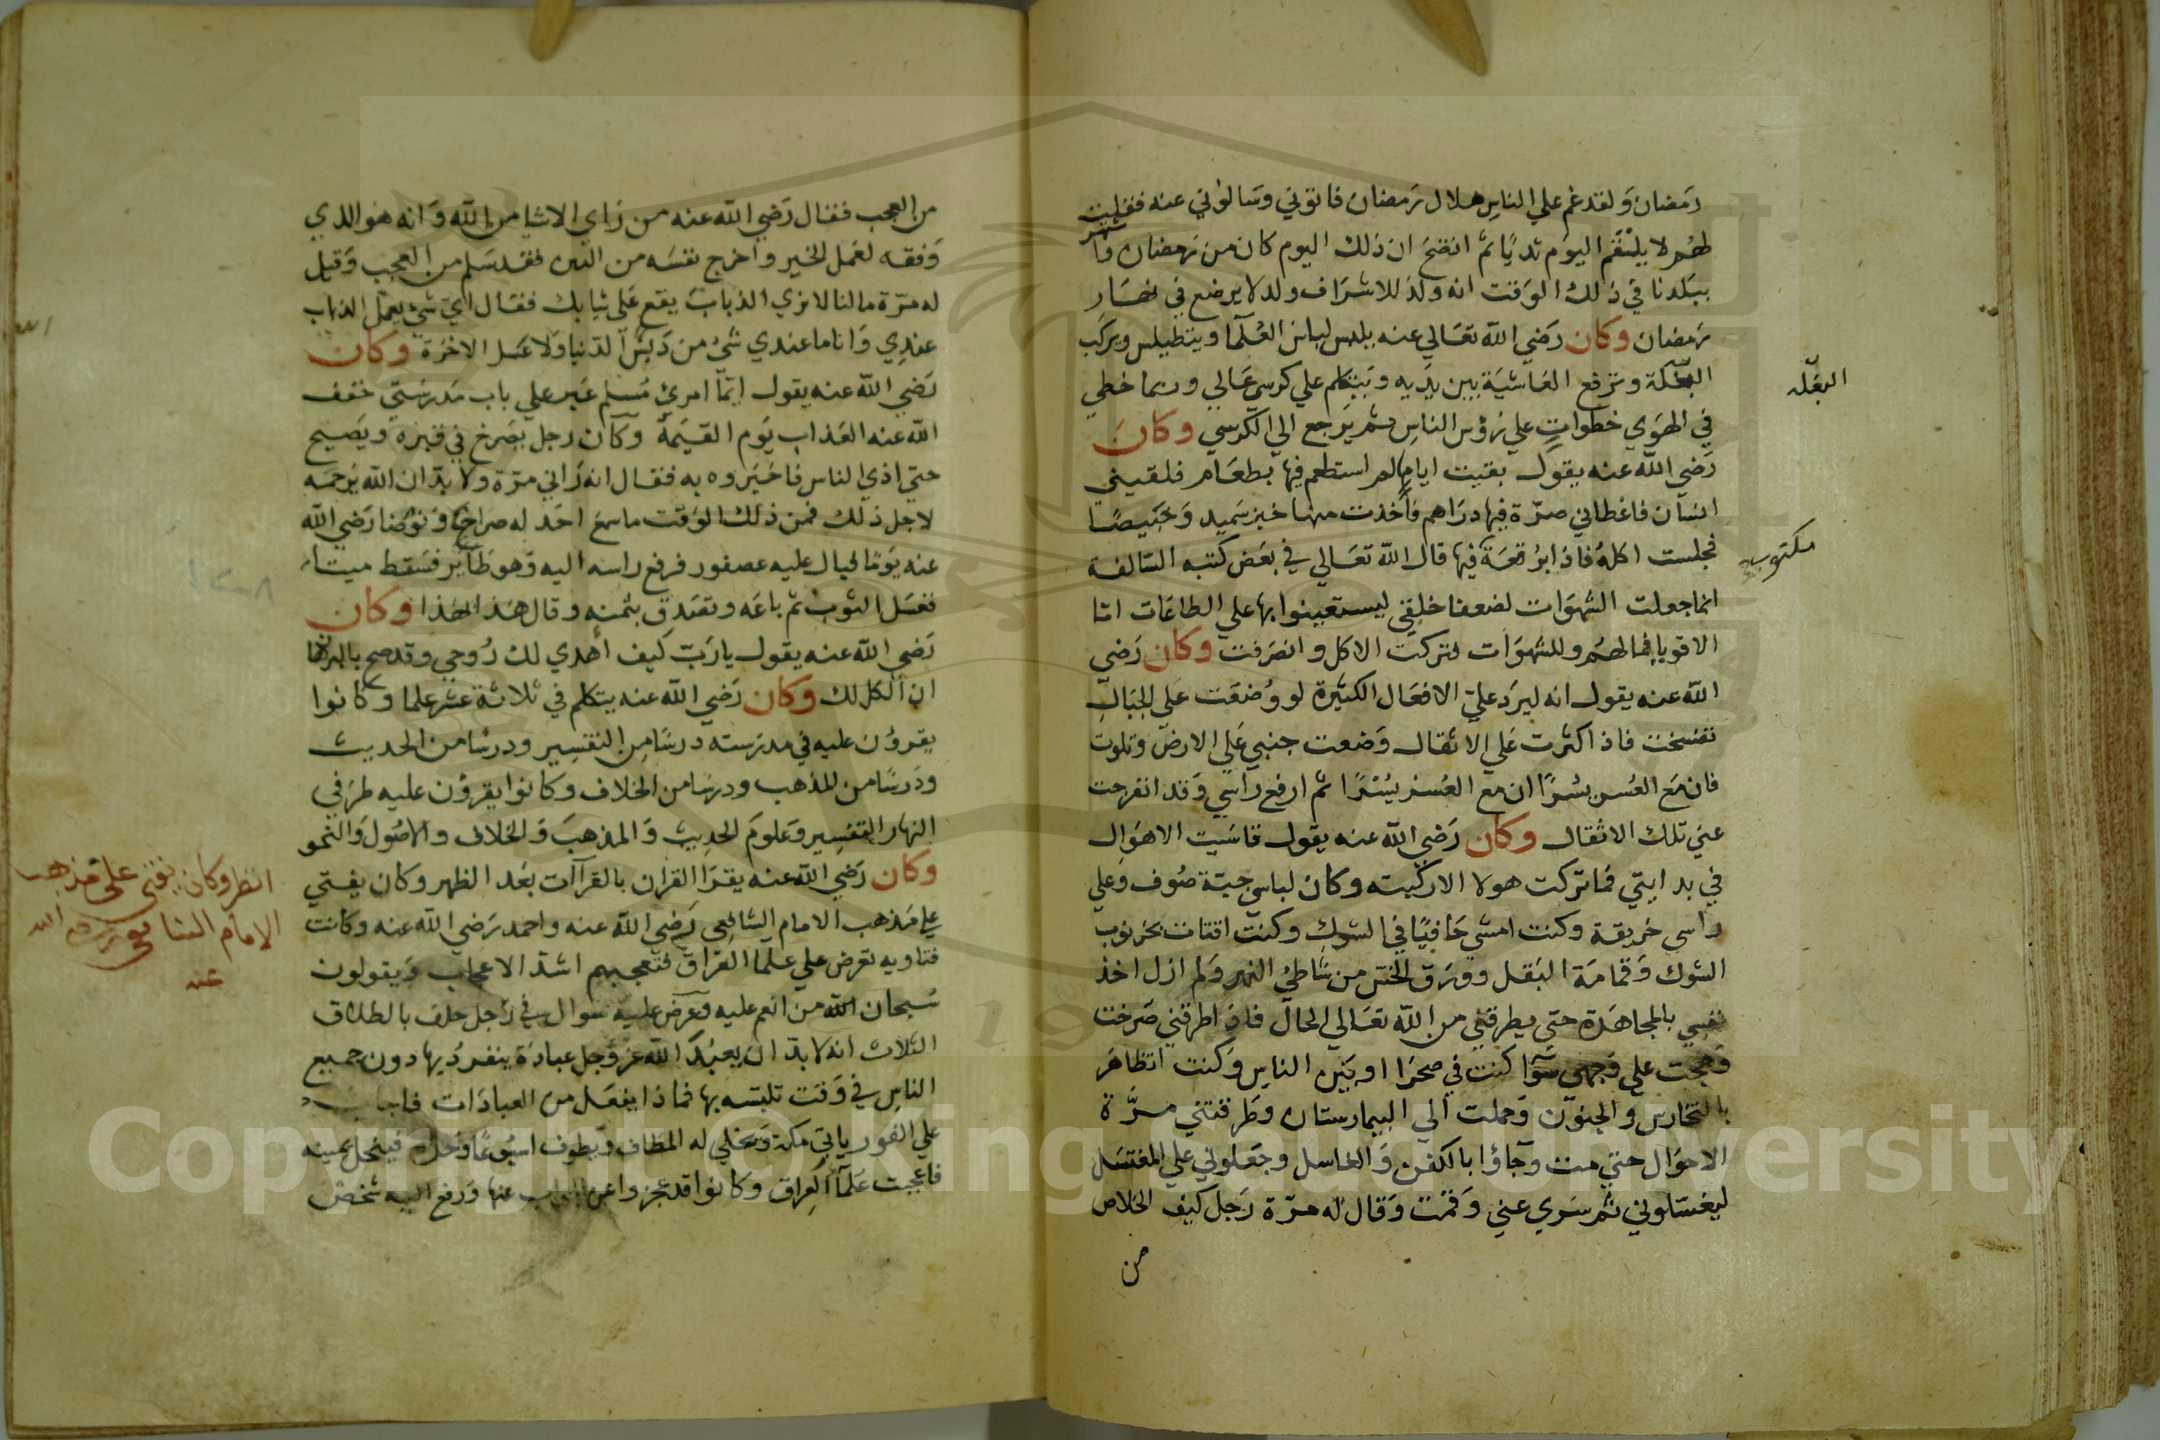 رمضان ولقد غم علي الناس هلال رمضان فاتوني وسالوني عنه فقلت
لهم لا يلتقم اليوم ثديا ثم اتضح ان ذلك اليوم كان من رمضان واشتهر
ببلدنا في ذلك الوقت انه ولد للاشراف ولد لا يرضع في نهار
رمضان وكان رضي الله تعالي عنه يلبس لباس العلما ويتطيلس ويركب
البغلة وترفع الغاشية بين يديه ويتكلم علي كرسي عالي وربما خطي
البغله
في الهوي خطوات علي رؤس الناس ثم يرجع الي الكرسي وكان
رضي الله عنه يقول بقيت اياما لم استطعم فيها بطعام فلقيني
انسان فاعطاني صرة فيها دراهم فاخذت منها خبز سميد وخبيصا
فجلست اكله فاذا برقعة فيها قال الله تعالي في بعض كتبه السالفة
مكتوب
انما جعلت الشهوات لضعفا خلقي ليستعينوا بها علي الطاعات اما
الاقويا فما لهم وللشهوات فتركت الاكل وانصرفت وكان رضي
الله عنه يقول انه ليرد علي الاثقال الكثيرة لو وضعت علي الجبال
تفسخت فاذا كثرت علي الاثقال وضعت جنبي علي الارض وتلوت
فان مع العسر يسرا ان مع العسر يسرا ثم ارفع راسي وقد انفرجت
عني تلك الاثقال وكان رضي الله عنه يقول قاسيت الاهوال
في بدايتي فما تركت هولا الا ركبته وكان لباسي جبة صوف وعلي
راسي خريقة وكنت امشي حافيا في الشوك وكنت اقتات بخرنوب
الشوك وقمامة البقل وورق الخس من شاطئ النهر ولم ازل اخذ
نفسي بالمجاهدة حتي يطرقني من الله تعالي الحال فاذا طرقني صرخت
وهجت علي وجهي سوا كنت في صحرا او بين الناس وكنت اتظاهر
بالتخارس والجنون وحملت الي البيمارستان وطرقتني مرة
الاحوال حتي مت وجاؤا بالكفن والغاسل وجعلوني علي المغتسل
ليغسلوني ثم سري عني وقمت وقال له مرة رجل كيف الخلاص
من
من العجب فقال رضي الله عنه من راي الاشيا من الله وانه هو الذي
وفقه لعمل الخير واخرج نفسه من البين فقد سلم من العجب وقيل
له مرة ما لنا لا نري الذباب يقع علي ثيابك فقال اي شي يعمل الذباب
عندي وانا ما عندي شئ من دبس الدنيا ولا عسل الاخرة وكان
رضي الله عنه يقول ايما امرئ مسلم عبر علي باب مدرستي خفف
الله عنه العذاب يوم القيمة وكان رجل يصرخ في قبره ويصيح
حتي اذي الناس فاخبروه به فقال انه راني مرة ولا بد ان الله يرحمه
لاجل ذلك فمن ذلك الوقت ما سمع احد له صراخا وتوضا رضي الله
عنه يوما فبال عليه عصفور فرفع راسه اليه وهو طاير فسقط ميتا
فغسل الثوب ثم باعه وتصدق بثمنه وقال هذا بهذا وكان
رضي الله عنه يقول يا رب كيف اهدي لك روحي وقد صح بالبرهان
ان الكل لك وكان رضي الله عنه يتكلم في ثلاثة عشر علما وكانوا
يقرون عليه في مدرسته درسا من التفسير ودرسا من الحديث
ودرسا من المذهب ودرسا من الخلاف وكانوا يقرؤن عليه طرفي
النهار التفسير وعلوم الحديث والمذهب والخلاف والاصول والنحو
وكان رضي الله عنه يقرا القران بالقراآت بعد الظهر وكان يفتي
علي مذهب الامام الشافعي رضي الله عنه واحمد رضي الله عنه وكانت
انظر وكان يفتي علي مذهب
الامام الشافعي رضي الله
عنه
فتاويه تعرض علي علما العراق فتعجبهم اشد الاعجاب ويقولون
سبحان الله من انعم عليه وعرض عليه سوال في رجل حلف بالطلاق
الثلاث انه لا بد ان يعبد الله عز وجل عبادة ينفرد بها دون جميع
الناس في وقت تلبسه بها فماذا يفعل من العبادات فاجاب
علي الفور ياتي مكة ويخلي له المطاف ويطوف اسبوعا وحده فينحل يمينه
فاعجبت علما العراق وكانوا قد عجزوا عن الجواب عنها ورفع اليه شخص